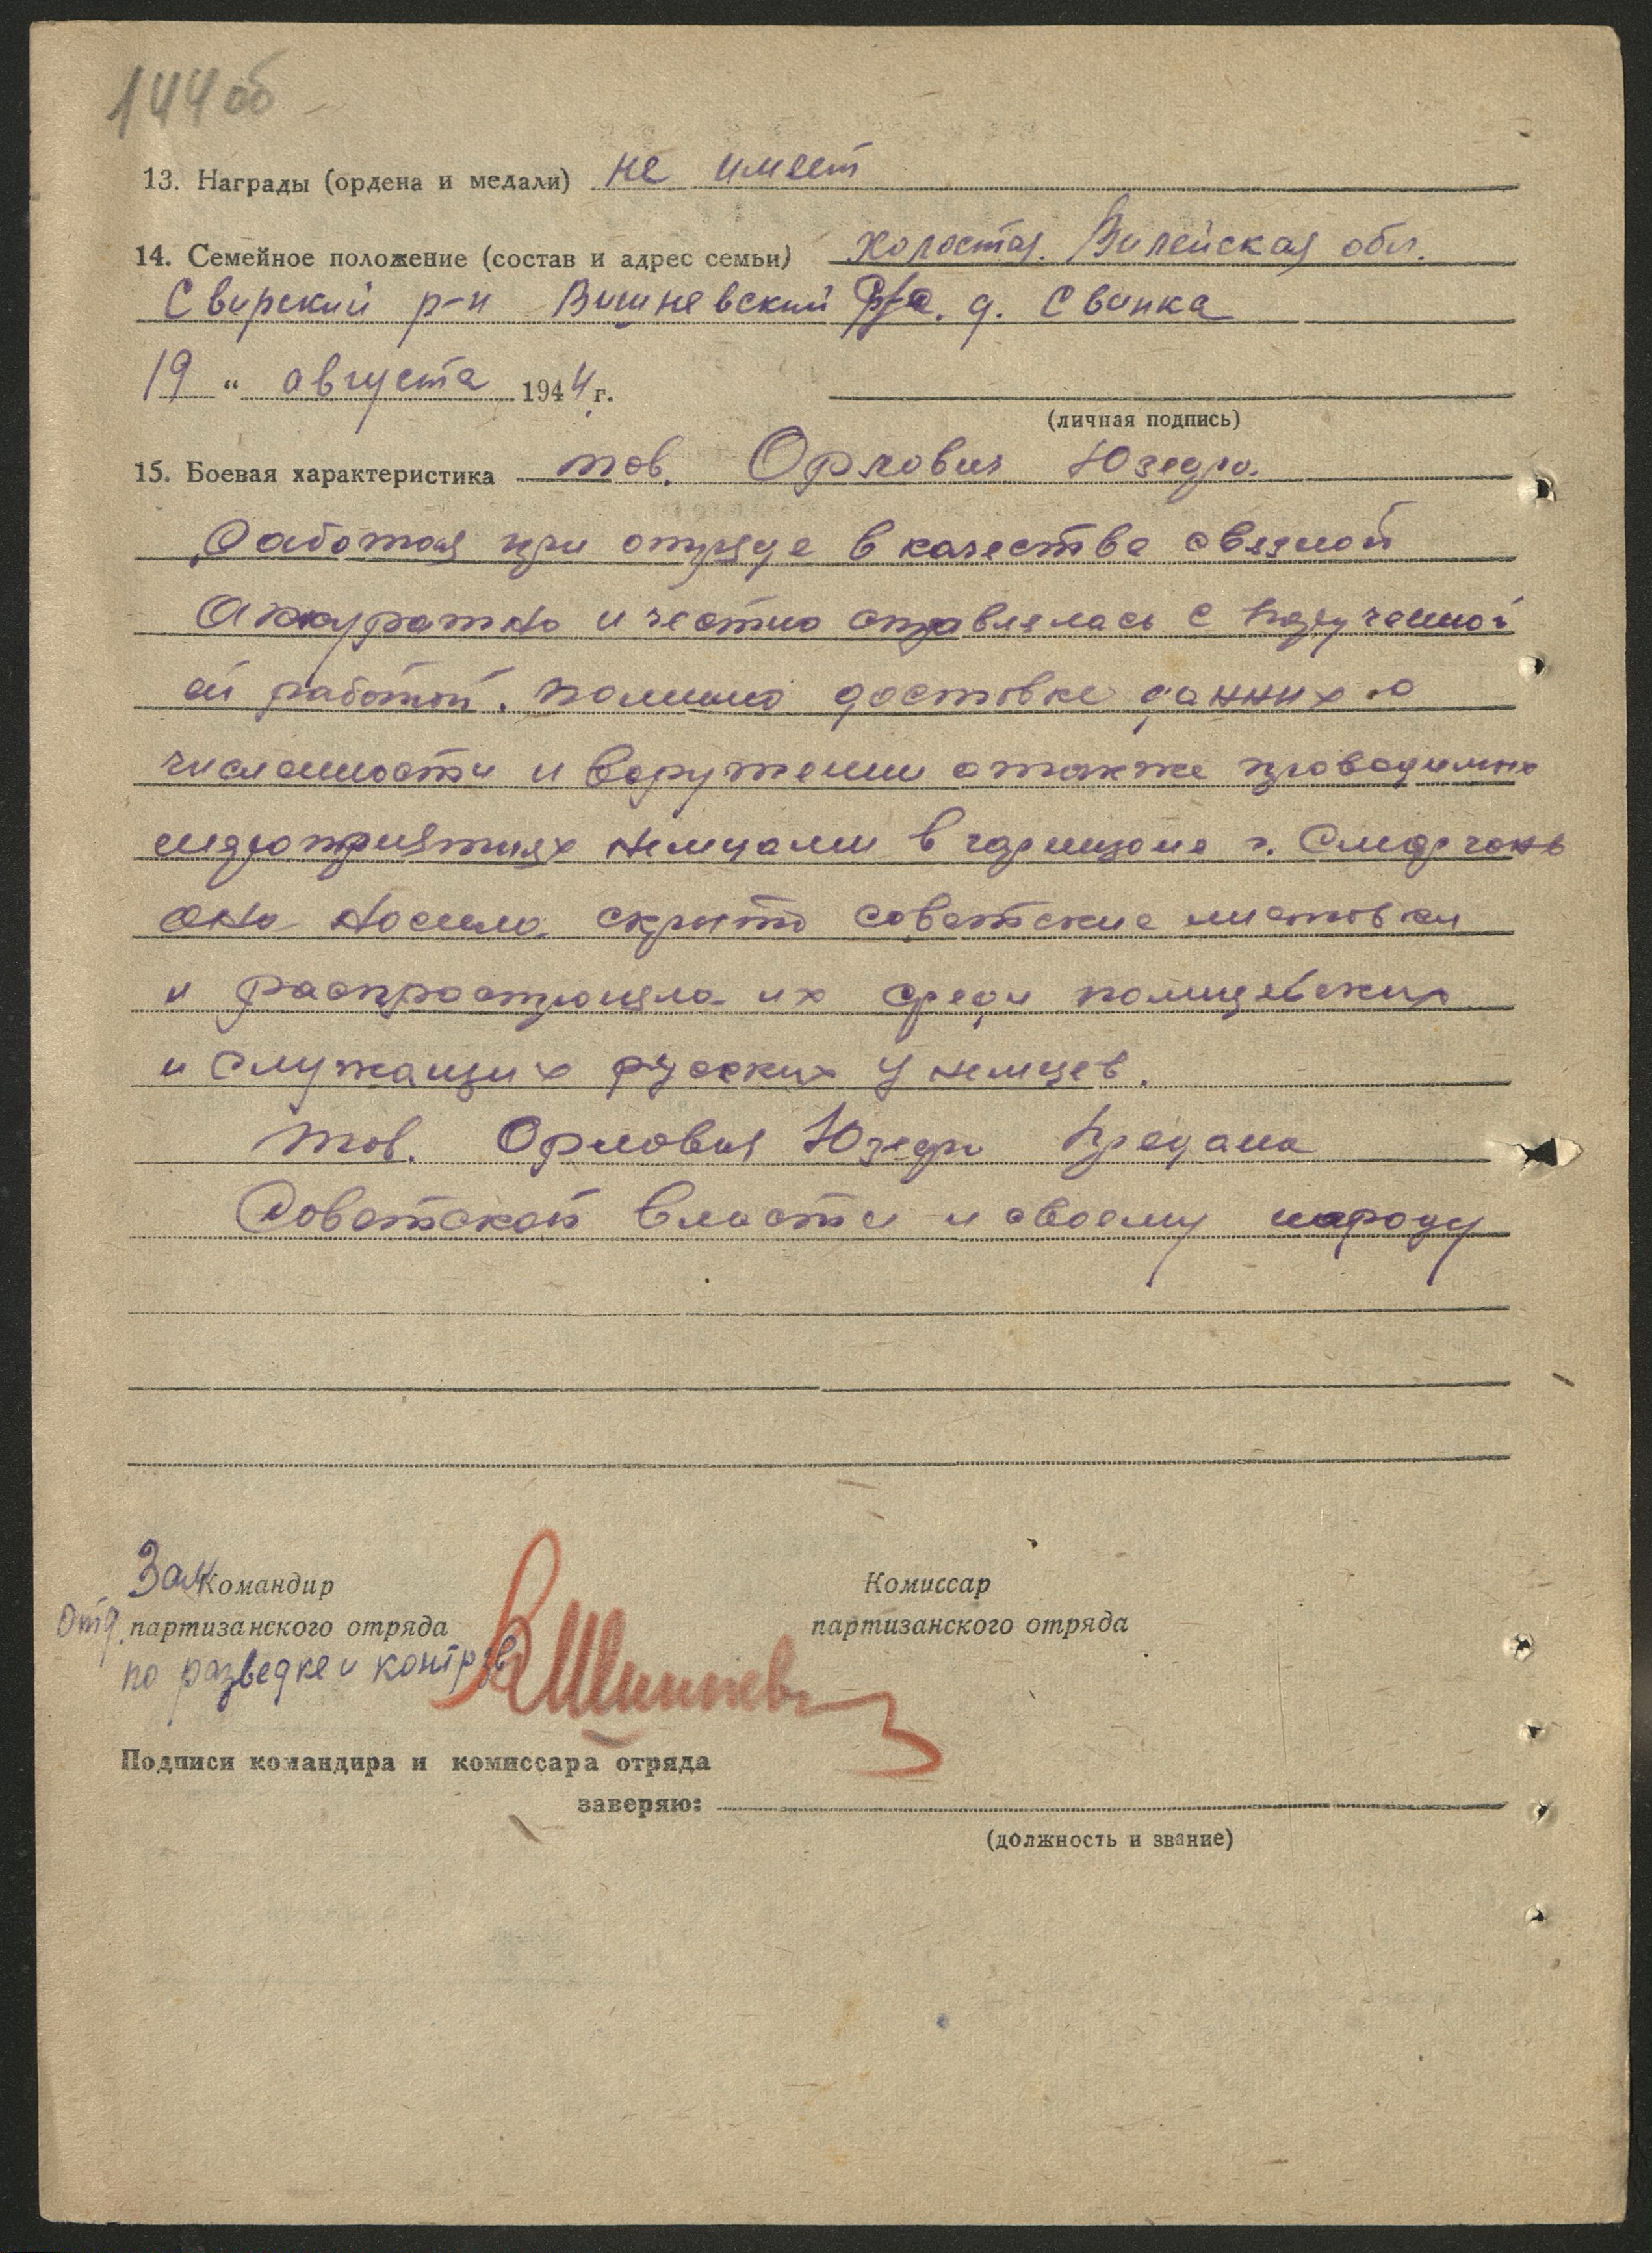 144 об
13. Награды (ордена и медали) не имеет
14. Семейное положение (состав и адрес семьи) холостая. Вилейская обл.
Свирский р-н Вишневский с/с. д. Сванка
19 " августа 1944 г.
(личная подпись)
15. Боевая характеристика тов. Орлович Юзефа.
Работая при отряде в качестве связной
Аккуратно и честно справлялась с порученной
ей работой. помимо доставке данних о
численности и воружении отакже проводимых
мидроприятиях немцами в гарнизоне г. Смаргонь
она носила скрыто советские листовки
и распространяла их среди полицейских
и служащих русских у немцев.
тов. Орлович Юзефа предана
Советской власти и своему народу
Зам Командир
Отд. партизанского отряда
по разведке и контрраз
Комиссар
партизанского отряда
Подписи командира и комиссара отряда
заверяю:
(должность и звание)